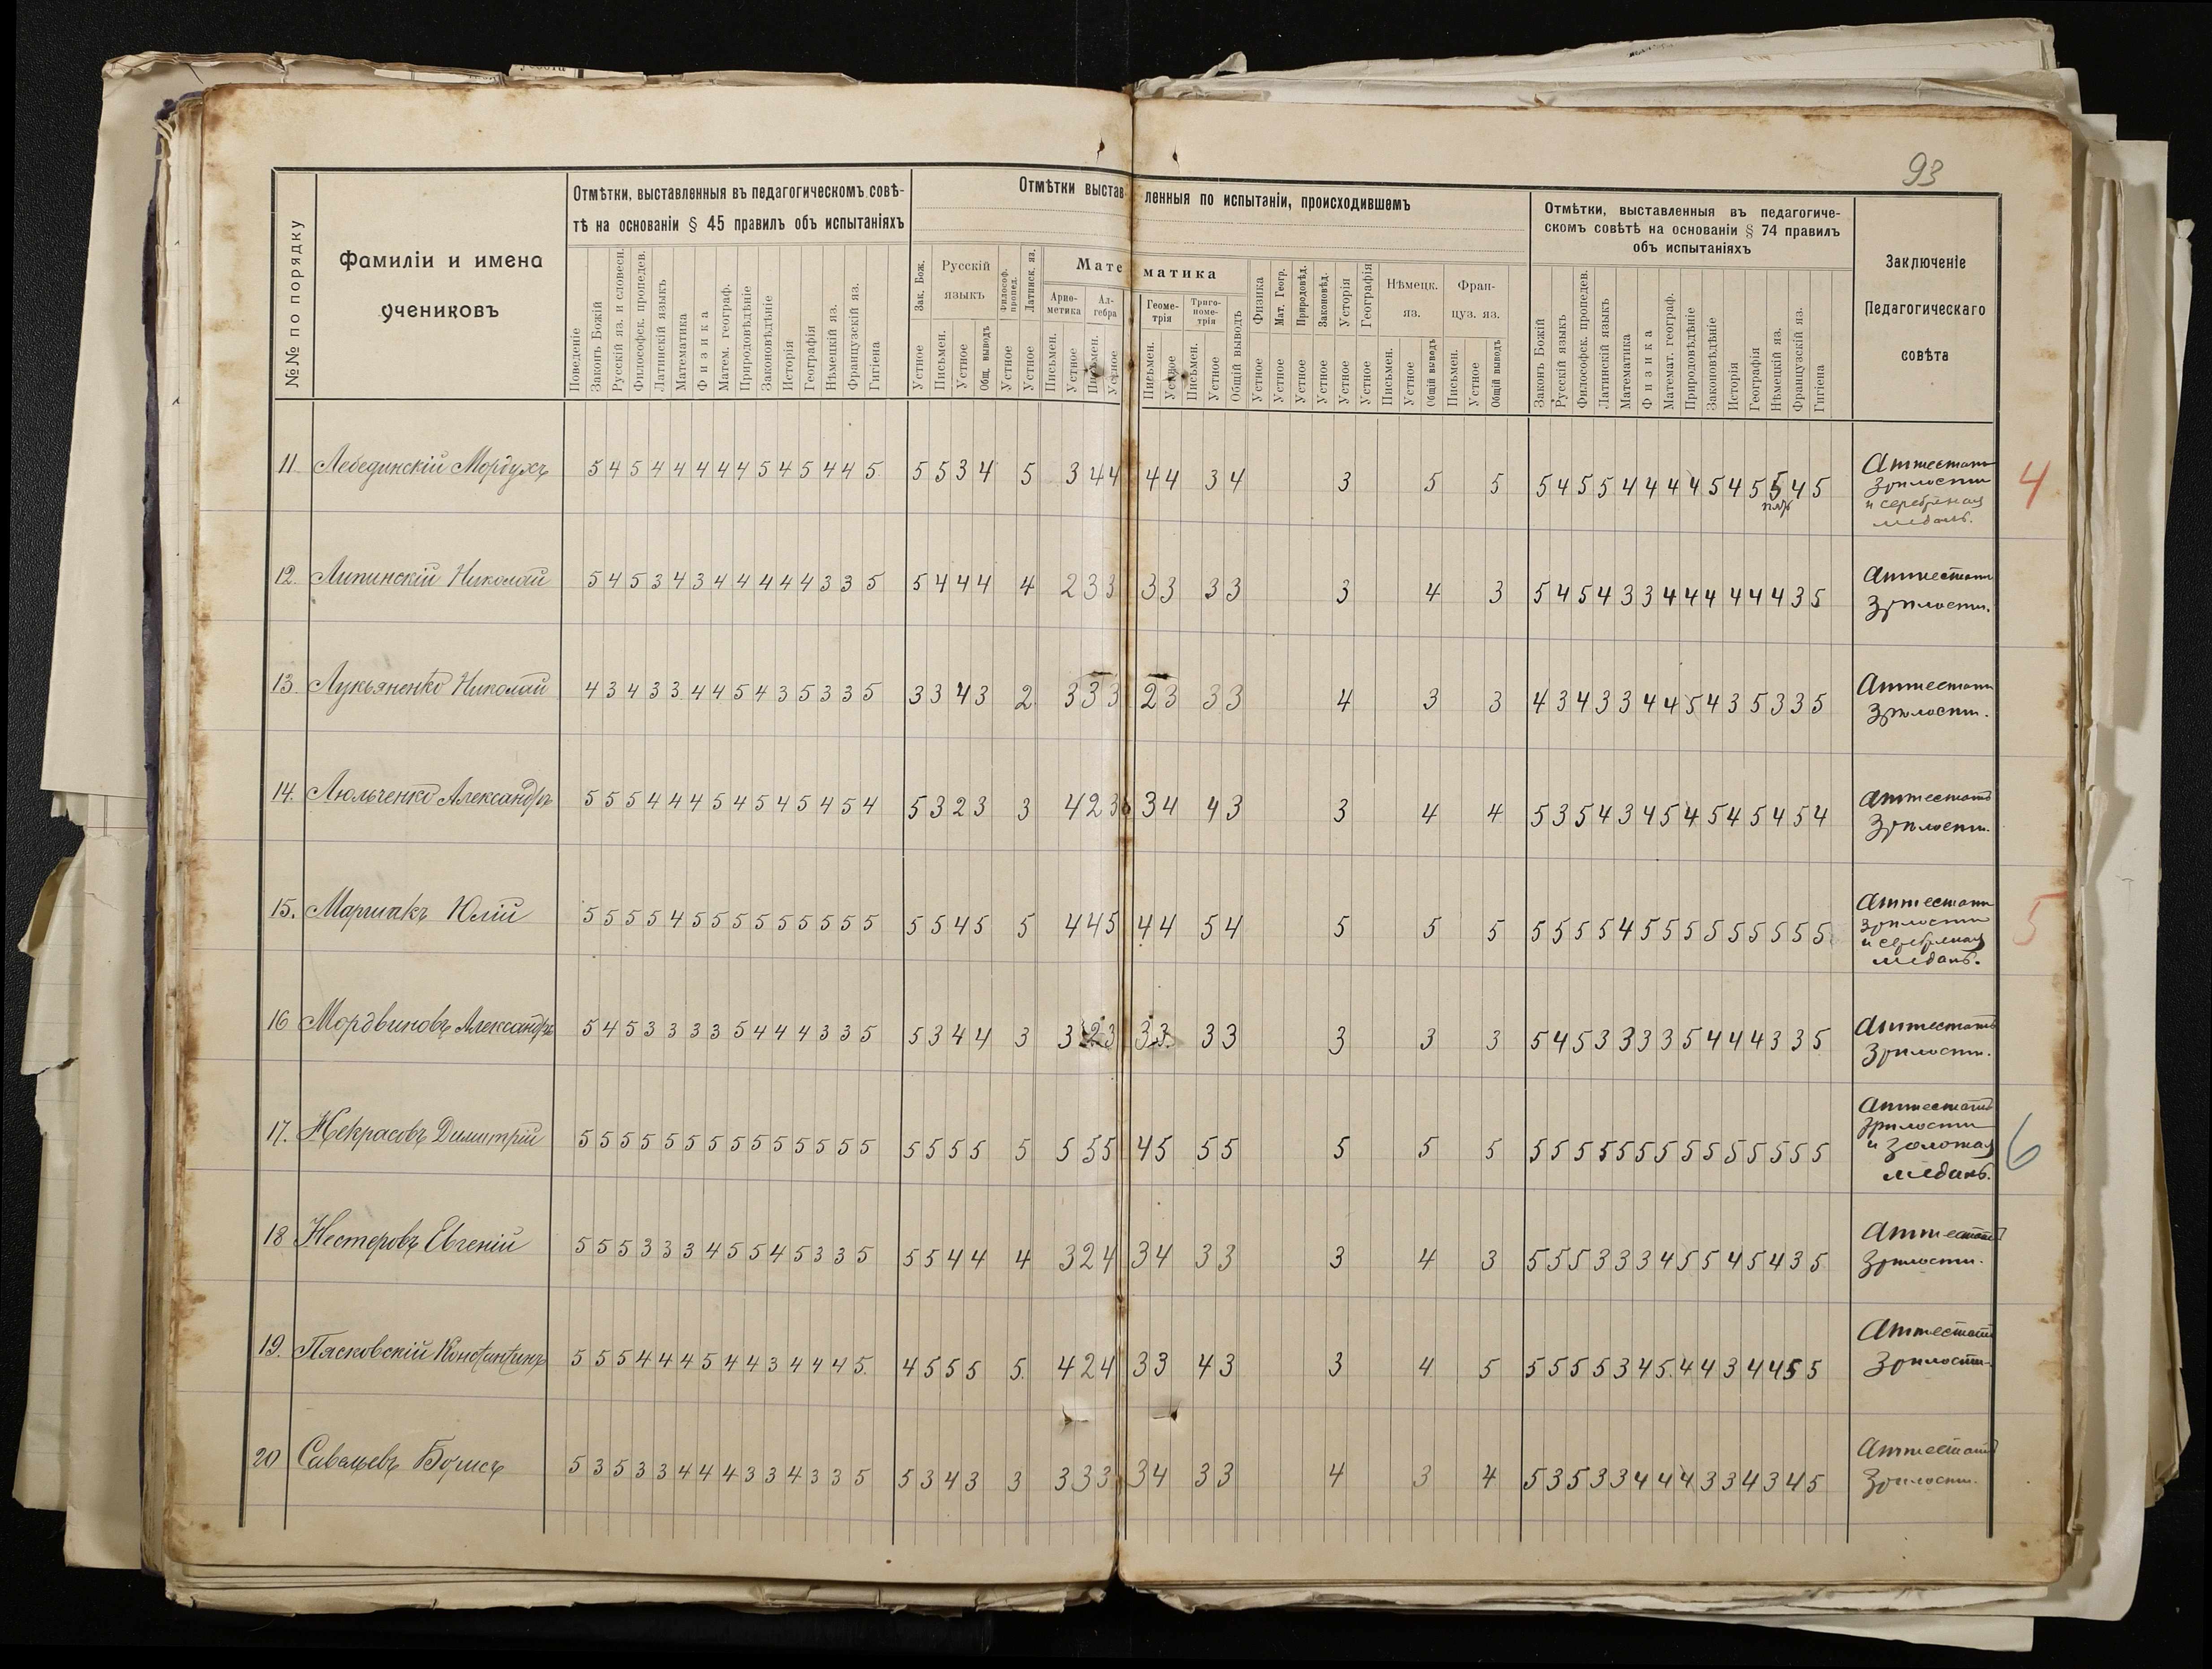 93
№№ по порядку
Фамиліи и имена
учениковъ
Отмѣтки, выставленныя въ педагогическомъ совѣ-
тѣ на основаніи § 45 правилъ объ испытаніяхъ
Поведеніе
Законъ Божій
Русскій яз. и словесн.
Философск. пропедев.
Латинскій языкъ
Математика
Физика
Матем. географ.
Природовѣдѣніе
Законовѣдѣніе
Исторія
Географія
Нѣмецкій яз.
Французскій яз.
Гигіена
Отмѣтки выставленныя по испытаніи, происходившемъ
Зак. Бож.
Устное
Русскій
языкъ
Письмен.
Устное
Общ. выводъ
Философ.
пропед.
Устное
Латинск. яз.
Устное
Математика
Арие-
метика
Письмен.
Устное
Ал-
гебра
Письмен.
Устное
Геоме-
трія
Письмен.
Устное
Триго-
номе-
трія
Письмен.
Устное
Общій выводъ
Физика
Устное
Мат. Геогр.
Устное
Природовѣд.
Устное
Законовѣд.
Устное
Усторія
Устное
Географія
Устное
Нѣмецк.
яз.
Письмен.
Устное
Общій выводъ
Фран-
цуз. яз.
Письмен.
Устное
Общій выводъ
Отмѣтки, выставленныя въ педагогиче-
скомъ совѣтѣ на основаніи § 74 правилъ
объ испытаніяхъ
Законъ Божій
Русскій языкъ
Философск. пропедев.
Латинскій языкъ
Математика
Физика
Математ. географ.
Природовѣдѣніе
Законовѣдѣніе
Исторія
Географія
Нѣмецкій яз.
Французскій яз.
Гигіена
Заключеніе
Педагогическаго
совѣта
11. Лебединскій Мордухъ 5 4 5 4 4 4 4 4 5 4 5 4 4 5 5 5 3 4 5 3 4 4 4 4 3 4 3 5 5 5 4 5 5 4 4 4 4 5 4 5 5 4 5 Аттестатъ
зрѣлости
и серебряная
медаль.
4
12. Липинскій Николай 5 4 5 3 4 3 4 4 4 4 4 3 3 5 5 4 4 4 4 2 3 3 3 3 3 3 3 4 3 5 4 5 4 3 3 4 4 4 4 4 4 3 5 Аттестатъ
зрѣлости.
13. Лукьяненко Николай 4 3 4 3 3 4 4 5 4 3 5 3 3 5 3 3 4 3 2 3 3 3 2 3 3 3 4 3 3 4 3 4 3 3 4 4 5 4 3 5 3 3 5 Аттестатъ
зрѣлости.
14. Люльченко Александръ 5 5 5 4 4 4 5 4 5 4 5 4 5 4 5 3 2 3 3 4 2 3 3 4 4 3 3 4 4 5 3 5 4 3 4 5 4 5 4 5 4 5 4 Аттестатъ
зрѣлости.
15. Маршакъ Юлій 5 5 5 5 4 5 5 5 5 5 5 5 5 5 5 5 4 5 5 4 4 5 4 4 5 4 5 5 5 5 5 5 5 4 5 5 5 5 5 5 5 5 5 Аттестатъ
зрѣлости
и серебряная
медаль.
5
16 Мордвиновъ Александръ 5 4 5 3 3 3 3 5 4 4 4 3 3 5 5 3 4 4 3 3 2 3 3 3 3 3 3 3 3 5 4 5 3 3 3 3 5 4 4 4 3 3 5 Аттестатъ
зрѣлости.
17. Некрасовъ Димитрій 5 5 5 5 5 5 5 5 5 5 5 5 5 5 5 5 5 5 5 5 5 5 4 5 5 5 5 5 5 5 5 5 5 5 5 5 5 5 5 5 5 5 5 Аттестатъ
зрѣлости
и золотая
медаль.
6
18 Нестеровъ Евгеній 5 5 5 3 3 3 4 5 5 4 5 3 3 5 5 5 4 4 4 3 2 4 3 4 3 3 3 4 3 5 5 5 3 3 3 4 5 5 4 5 4 3 5 Аттестатъ
зрѣлости.
19. Пясковскій Константинъ 5 5 5 4 4 4 5 4 4 3 4 4 4 5 4 5 5 5 5 4 2 4 3 3 4 3 3 4 5 5 5 5 5 3 4 5 4 4 3 4 4 5 5 Аттестатъ
зрѣлости
20 Савельевъ Борисъ 5 3 5 3 3 4 4 4 3 3 4 3 3 5 5 3 4 3 3 3 3 3 3 4 3 3 4 3 4 5 3 5 3 3 4 4 4 3 3 4 3 4 5 Аттестатъ
зрѣлости.